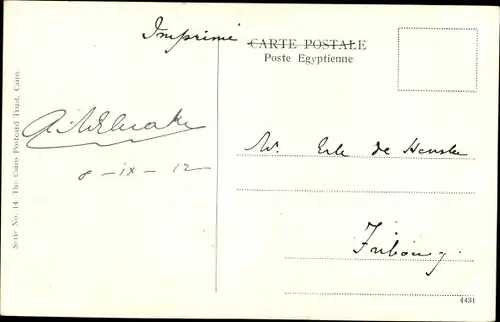 Imprimé
CARTE POSTALE
Poste Egyptienne
8-IX-12
de
Fribourg
4431
Serie No. 14 The Cairo Postcard Trust, Cairo.